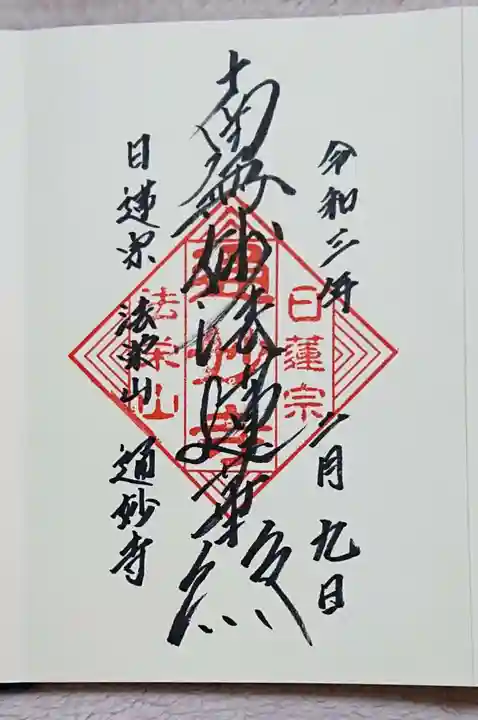 令和三年 六月 九日
南無妙法蓮華経
日蓮宗 法栄山 通妙寺
日蓮宗
法栄山